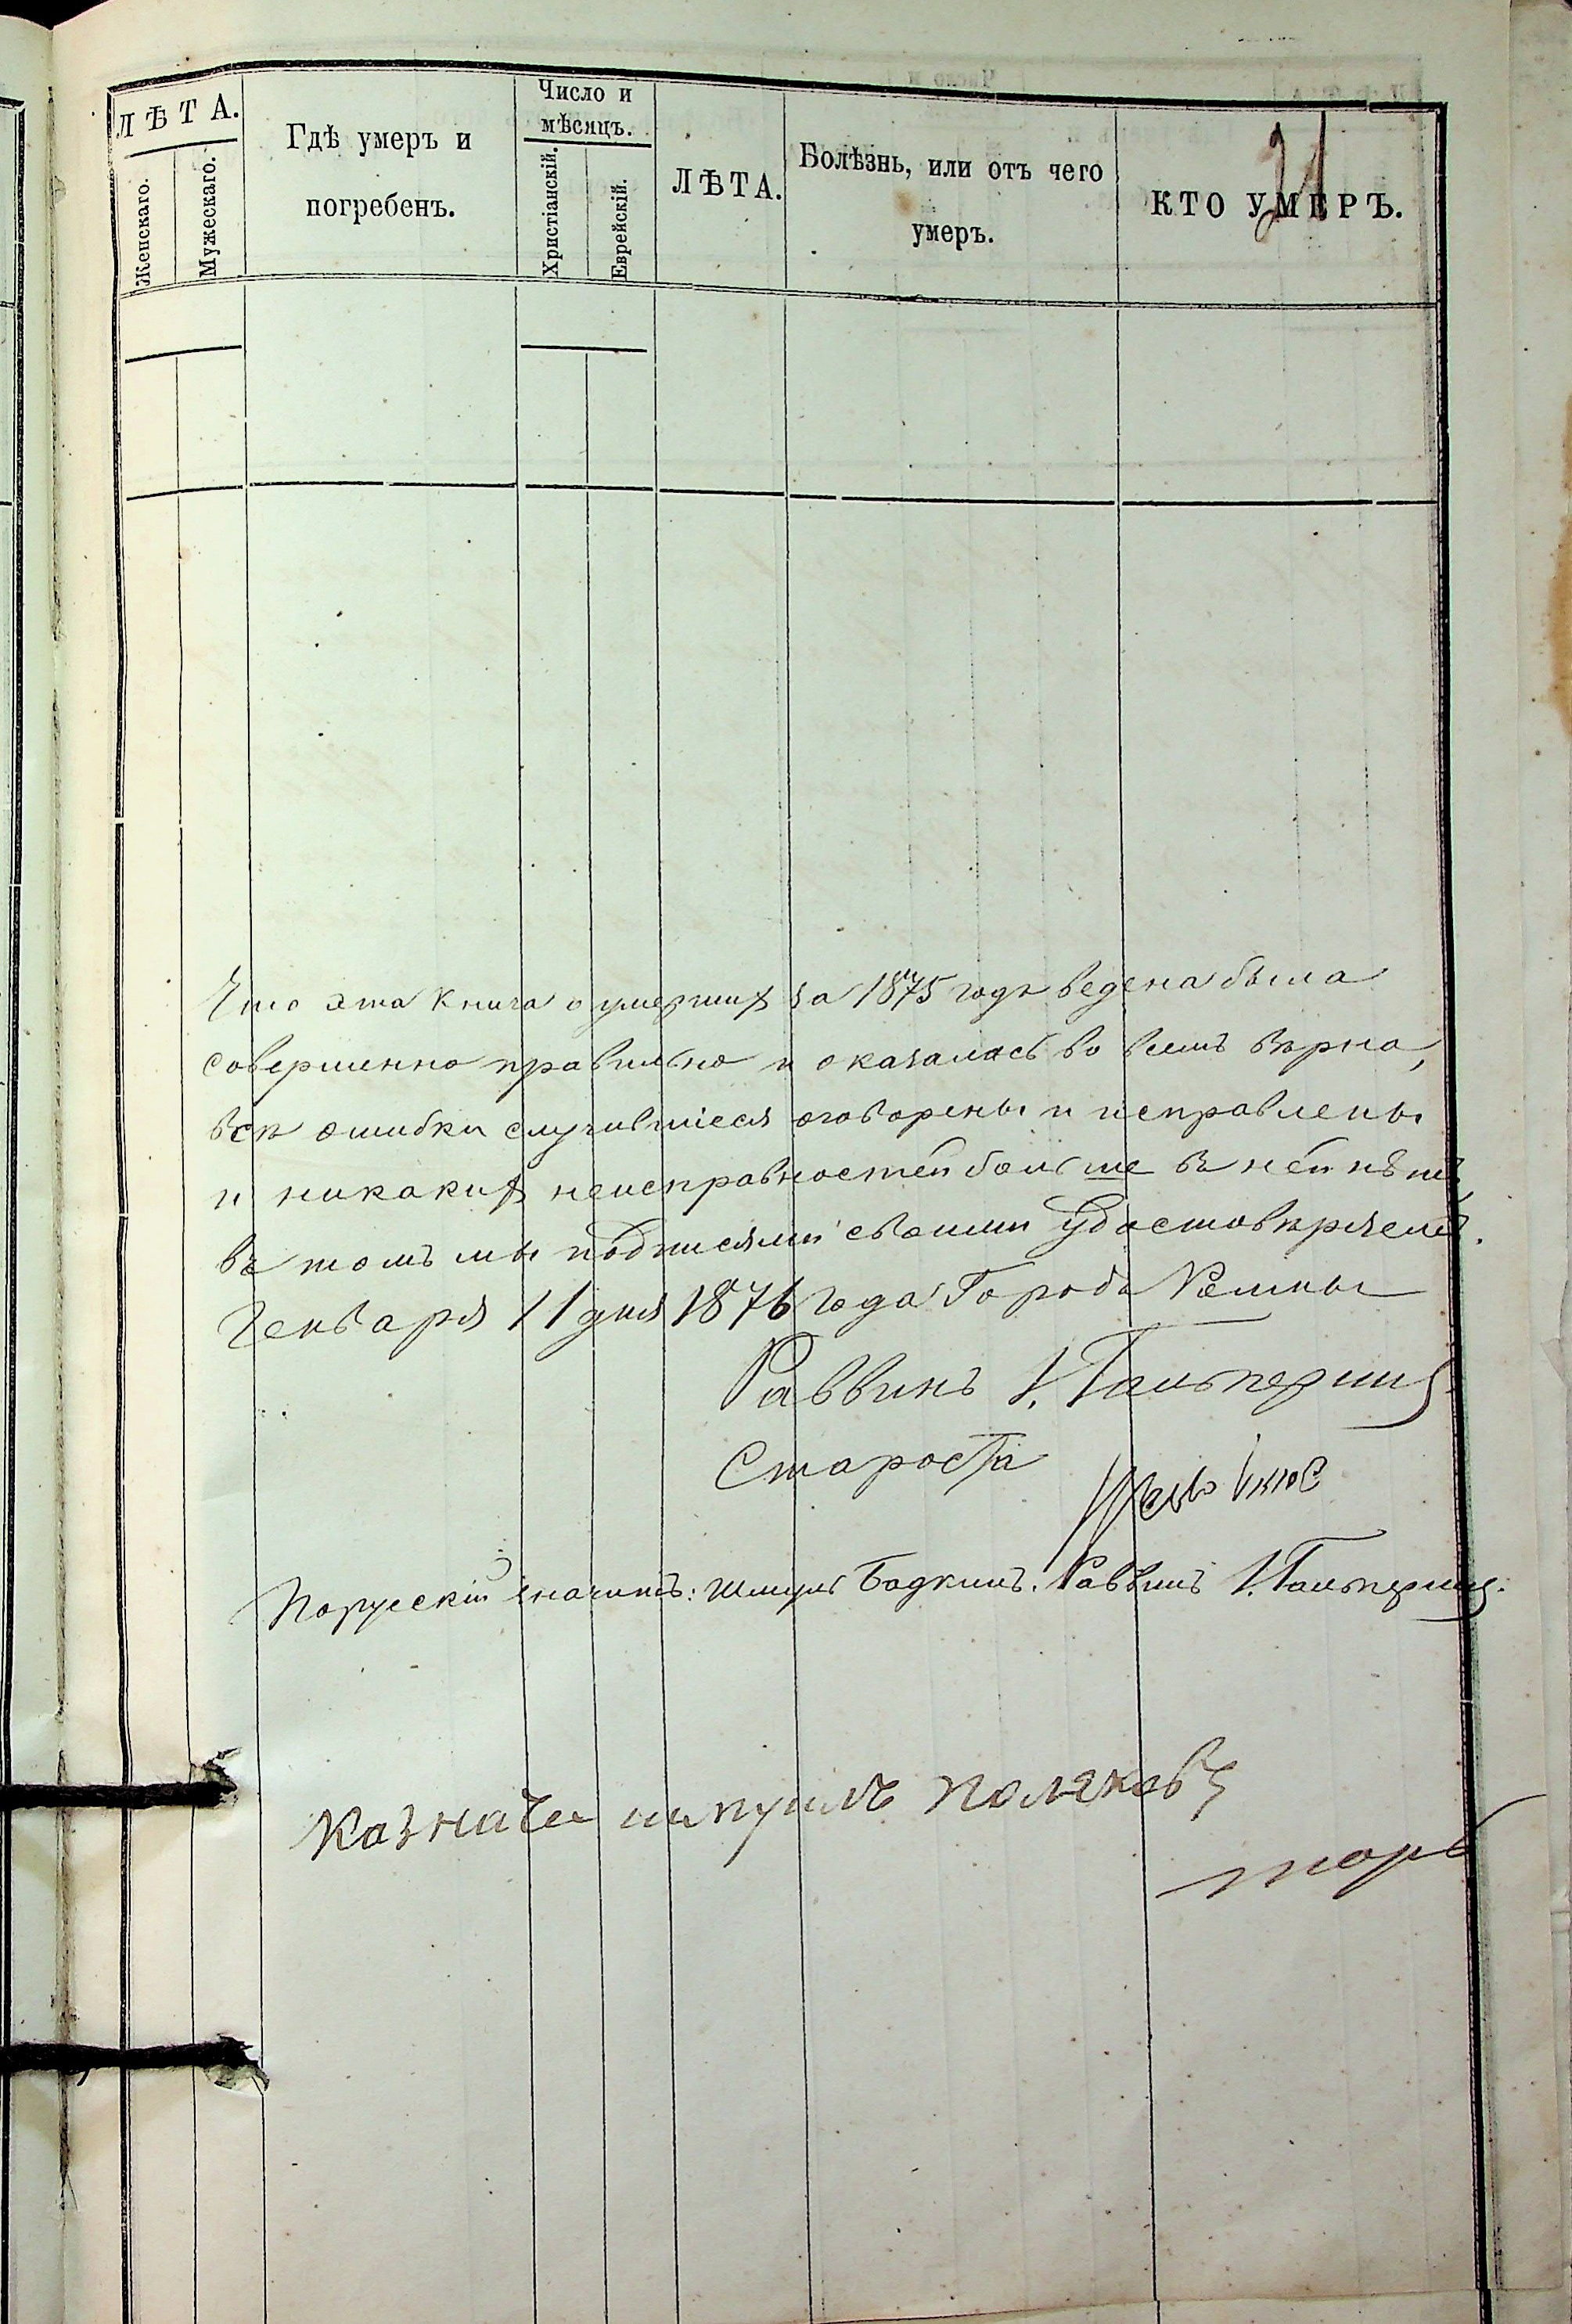 ЛѢТА.
Женскаго.
Мужескаго.
Гдѣ умеръ и
погребенъ.
Число и
мѣсяцъ.
Христіанскій.
Еврейскій.
ЛѢТА.
Болѣзнь, или отъ чего
умеръ.
КТО УМЕРЪ.
Что эта Книга о умершихъ за 1875 годъ ведена была
совершенно правильно и оказалась во всемъ вѣрна,
всѣ ошибки случившіеся оговорены и исправлены
и никакихъ неисправностей больше въ ней нѣтъ,
въ томъ мы подписями своими удостовѣряемъ.
Генваря 11 дня 1876 года Городъ Ромны
Раввинъ И. Гальперинъ
Староста
Порусскій значитъ: Шмуль Бадкинъ. Раввинъ И. Гальперинъ.
Казначеи Поляковъ